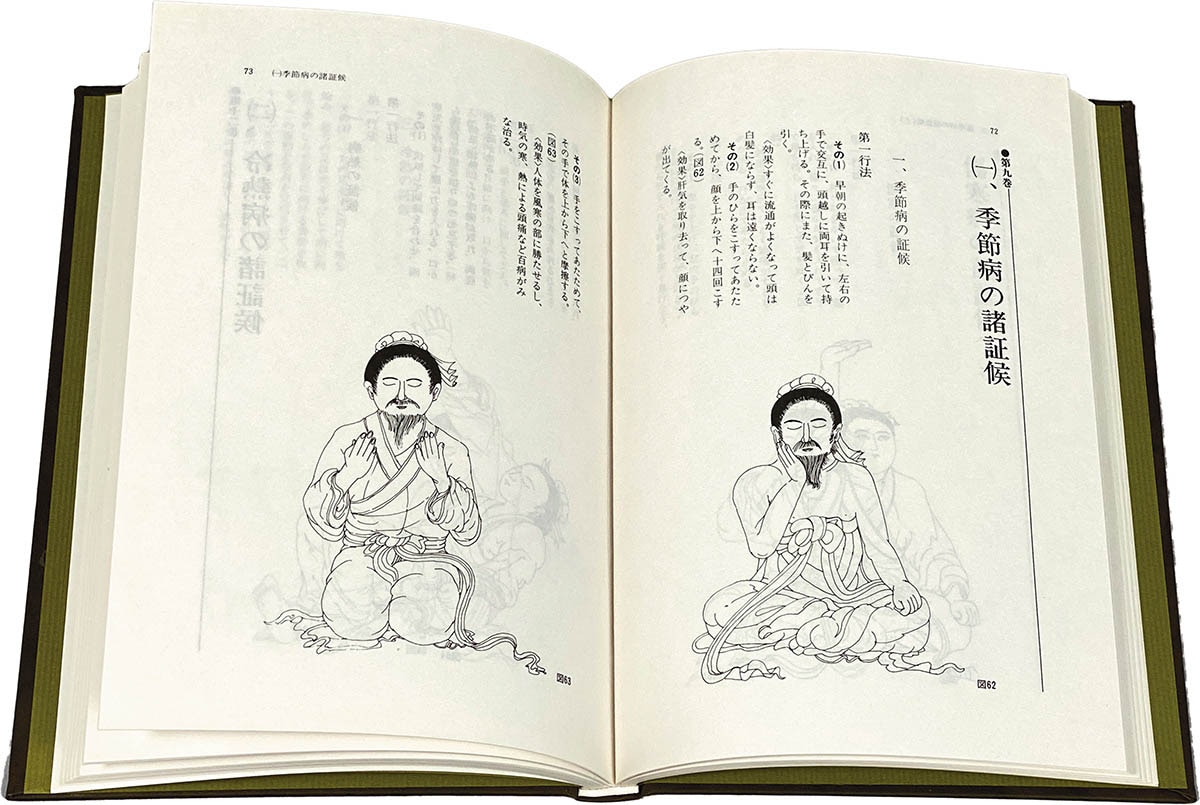 72
●第九巻
㈠、季節病の諸証候
一、季節病の証候
第一行法
その(1) 早朝の起きぬけに、左右の
手で交互に、頭越しに両耳を引いて持
ち上げる。その際にまた、髪とびんを
引く。
〈効果〉すぐに流通がよくなって頭は
白髪にならず、耳は遠くならない。
その(2) 手のひらをこすってあたた
めてから、顔を上から下へ十四回こす
る。(図62)
〈効果〉肝気を取り去って、顔につや
が出てくる。
図62
73 ㈠季節病の諸証候
その(3) 手をこすってあたためて、
その手で体を上から下へと摩擦する。
(図63)
〈効果〉人体を風寒の部に勝たせるし、
時気の寒、熱による頭痛など百病がみ
な治る。
図63